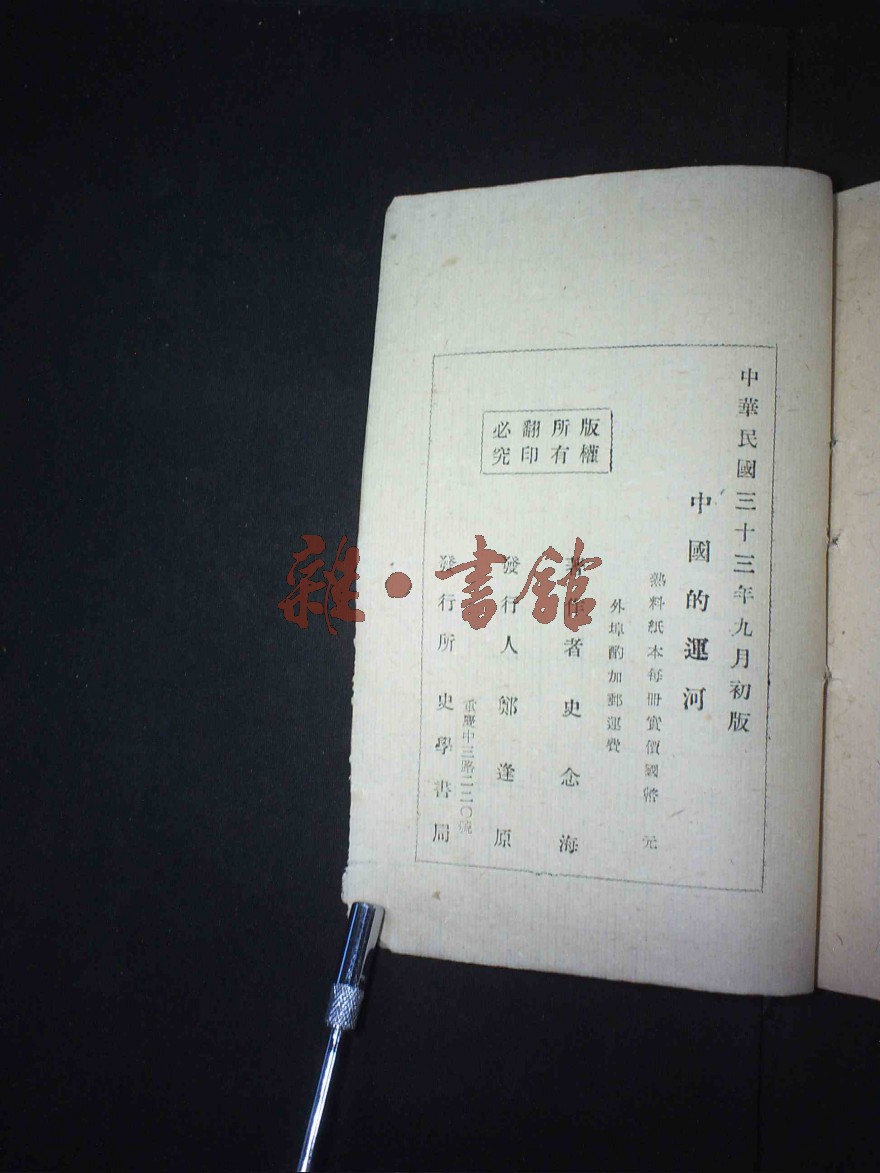 中華民國三十三年九月初版
中國的運河
熟料紙本每冊實價國幣 元
外埠酌加郵運費
著作者 史念海
發行人 鄭逢原
重慶中三路二二〇號
發行所 史學書局
版權所有翻印必究
雜·書館